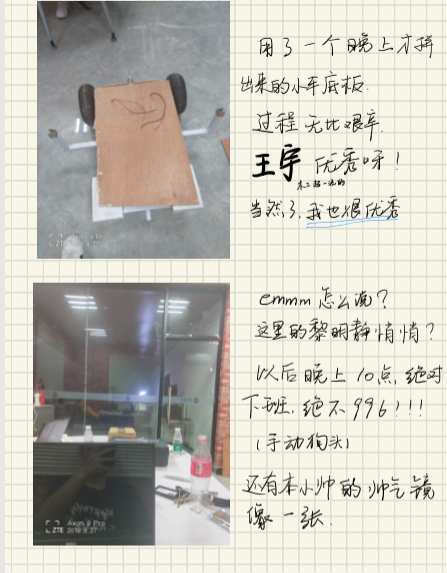 用了一个晚上才拼
出来的小车底板.
过程 无比艰辛.
王宇 优秀呀!
当然了,我也很优秀
ZTE
emmm 怎么说?
这里的黎明静悄悄?
以后晚上10点,绝对
下班,绝不996!!!
(手动狗头)
还有本小帅的帅气镜
像一张.
Axon 9 Pro
ZTE 2019.8.27